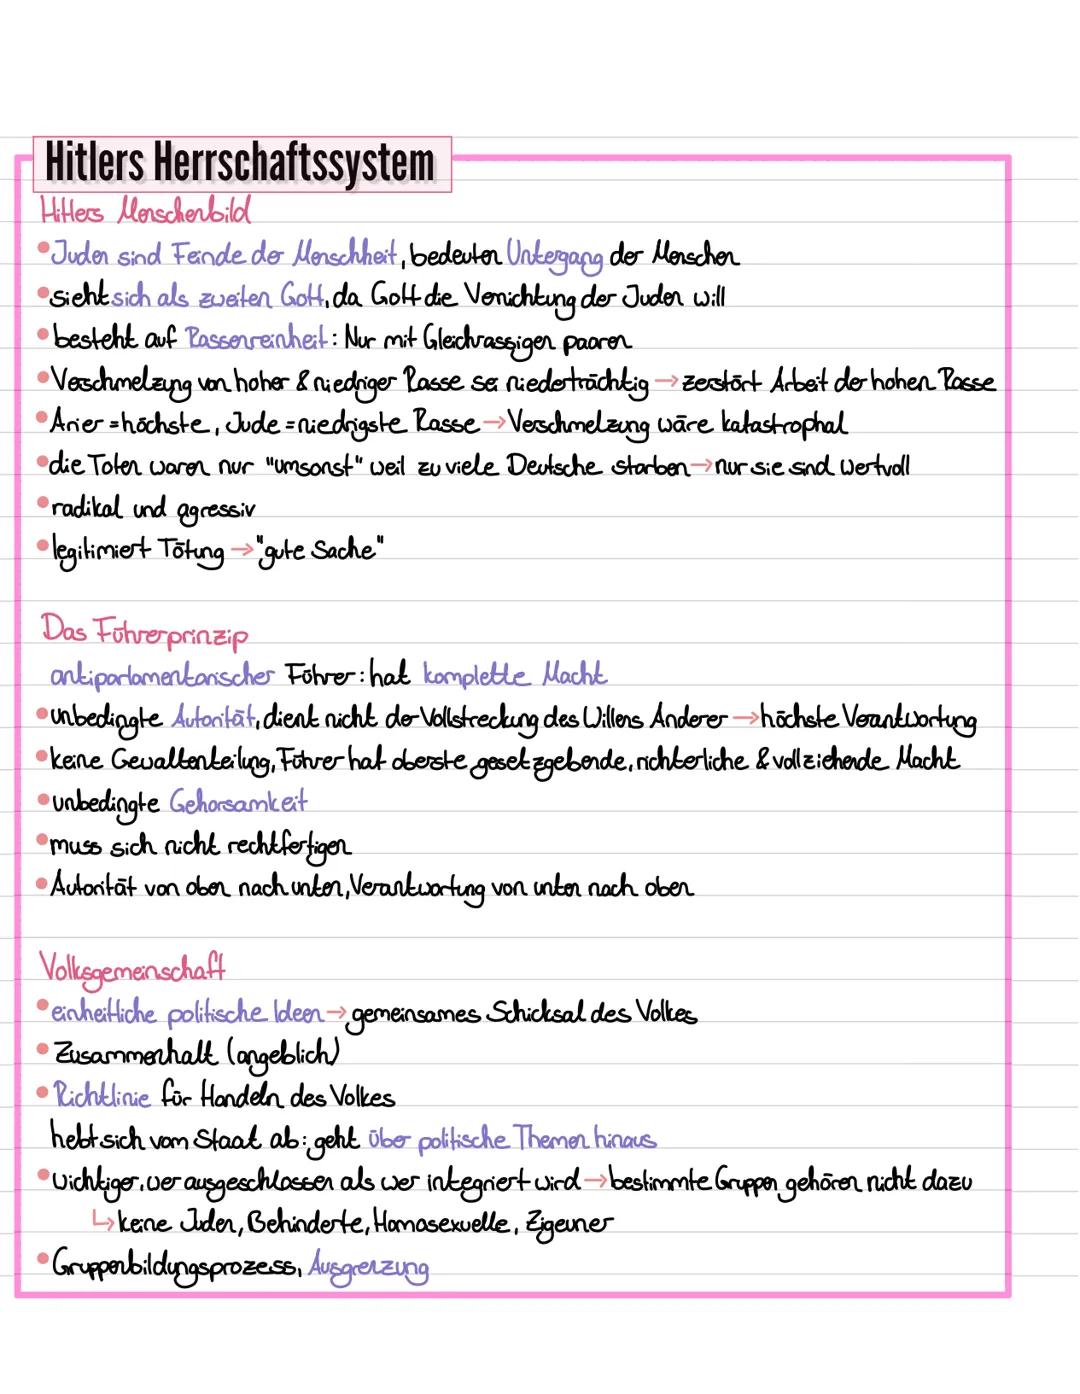 Hitlers Herrschaftssystem
Hitlers Menschenbild
•Juden sind Feinde der Menschheit, bedeuten Untergang der Menschen
•sieht sich als zweiten Gott, da Gott die Vernichtung der Juden will
•besteht auf Rassenreinheit: Nur mit Gleichrassigen paaren
•Verschmelzung von hoher & niedriger Rasse sei niederträchtig → zerstört Arbeit der hohen Rasse
•Arier = höchste, Jude = niedrigste Rasse → Verschmelzung wäre katastrophal
•die Toten waren nur "umsonst" weil zu viele Deutsche starben → nur sie sind wertvoll
•radikal und agressiv
•legitimiert Tötung → "gute Sache"
Das Führerprinzip
antiparlamentarischer Führer: hat komplette Macht
•unbedingte Autorität, dient nicht der Vollstreckung des Willens Anderer → höchste Verantwortung
•keine Gewaltenteilung, Führer hat oberste gesetzgebende, richterliche & vollziehende Macht
•unbedingte Gehorsamkeit
•muss sich nicht rechtfertigen
•Autorität von oben nach unten, Verantwortung von unten nach oben
Volksgemeinschaft
•einheitliche politische Ideen → gemeinsames Schicksal des Volkes
•Zusammenhalt (angeblich)
•Richtlinie für Handeln des Volkes
hebt sich vom Staat ab: geht über politische Themen hinaus
•wichtiger, wer ausgeschlossen als wer integriert wird → bestimmte Gruppen gehören nicht dazu
↳ keine Juden, Behinderte, Homosexuelle, Zigeuner
•Gruppenbildungsprozess, Ausgrenzung